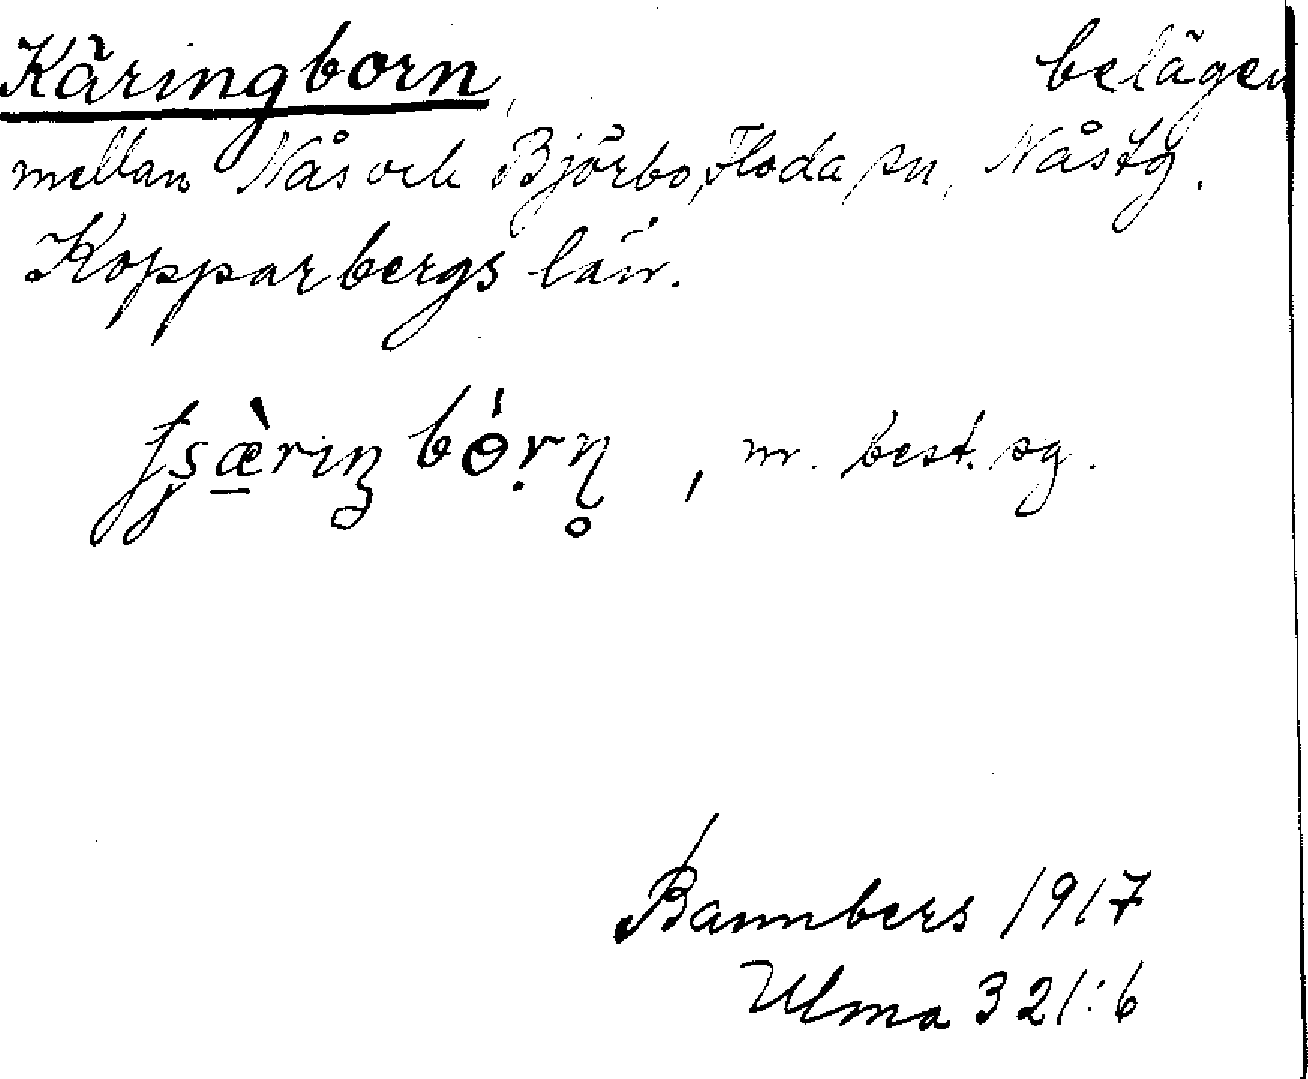 Käringborn, belägen
mellan Nås och Björbo, Floda sn, Nåstg.
Kopparbergs län.
, m. best. sg.
Bannbers 1917
Ulma 321:6